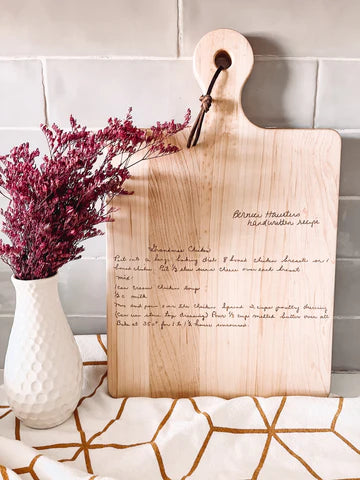 Bernice Hauetters
handwritten recipe
Grandmas Chicken
Put oils in a large baking dish 8 boned chicken breasts or 1
boned chicken. Put ½ slice swiss cheese over each breast
mix:
1 can cream chicken soup
½ c. milk
Mix and pour over the chicken. Spread 2 cups poultry dressing
(Can use stove top dressing) Pour ⅓ cup melted butter over all
Bake at 350° for 1 to 1½ hours uncovered.